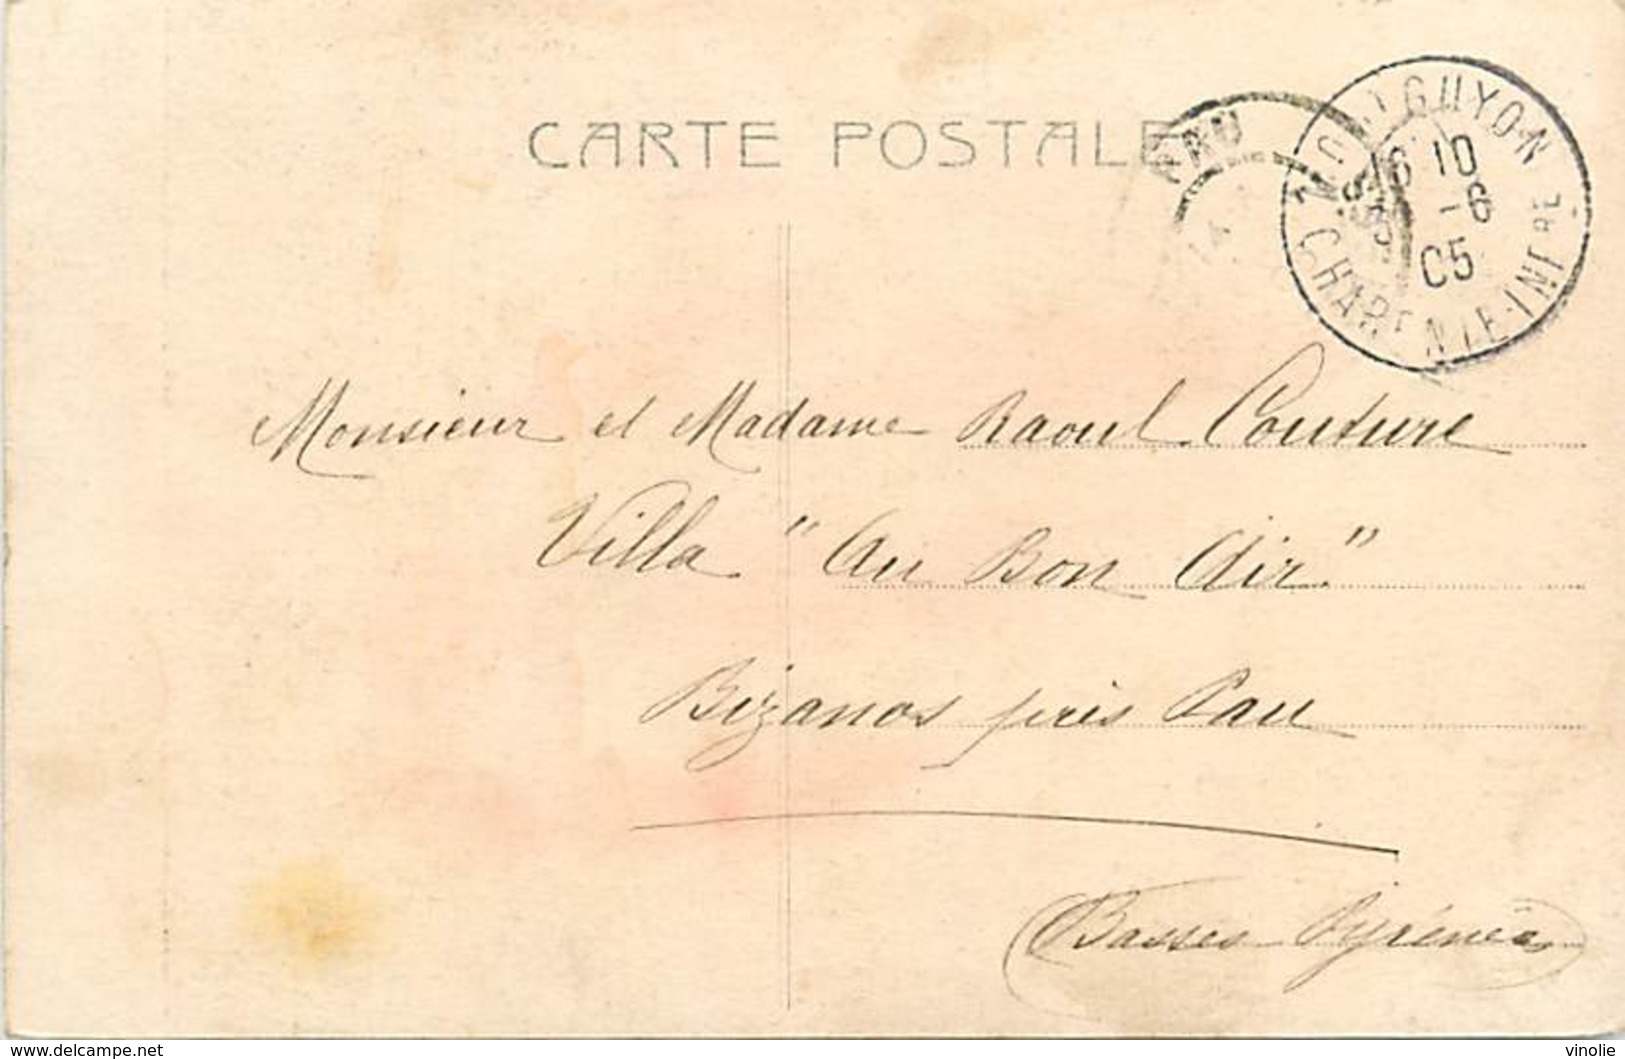 CARTE POSTALE
MONTGUYON
6 10
-6
05
CHARENTE-INFRE
Monsieur et Madame Raoul Couture
Villa "Au Bon Air"
Bizanos près Pau
Basses Pyrénées
www.delcampe.net
vinolie